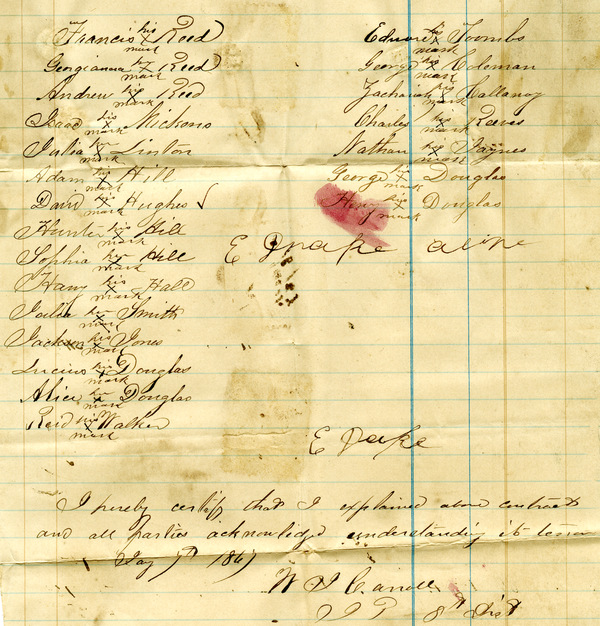 Francis his X mark Reed
Georgianna her X mark Reed
Andrew his X mark Reed
Isaac his X mark Nickons
Julia her X mark Linton
Adam his X mark Hill
David his X mark Hughes √
Hunter his X mark Hill
Sophia her X mark Hill
Harry his X mark Hall
Julia her X mark Smith
Jackson his X mark Jones
Lucius his X mark Douglas
Alice her X mark Douglas
Reid his X mark Walker
Edward his X mark Toombs
George his X mark Coleman
Zachariah his X mark Callaway
Charles his X mark Reeves
Nathan his X mark Haynes
George his X mark Douglas
his X mark Douglas
E Drake
E Drake
I hereby certify that I explained above contract
and all parties acknowledged understanding its terms
7th 1867
W J Carroll
J P 8th Dist